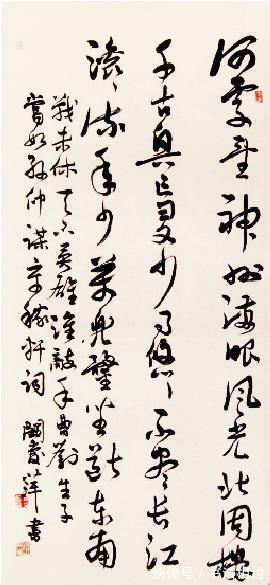 何處望神州滿眼風光北固樓
千古興亡多少事悠〻不盡長江
滾〻流年少萬兜鍪坐斷東南
戰未休天下英雄誰敵手曹劉生子
當如孫仲謀辛稼軒詞 書
快传号